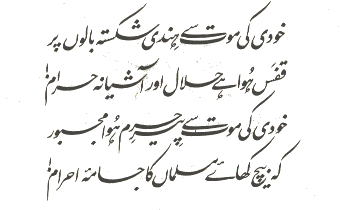 خودی کی موت سے ہندی شکستہ بالوں پر
قفس ہُوا ہے حلال اور آشیانہ حرام!
خودی کی موت سے پیرِ حرم ہُوا مجبور
کہ بیچ کھائے مسلماں کا جامۂ احرام!